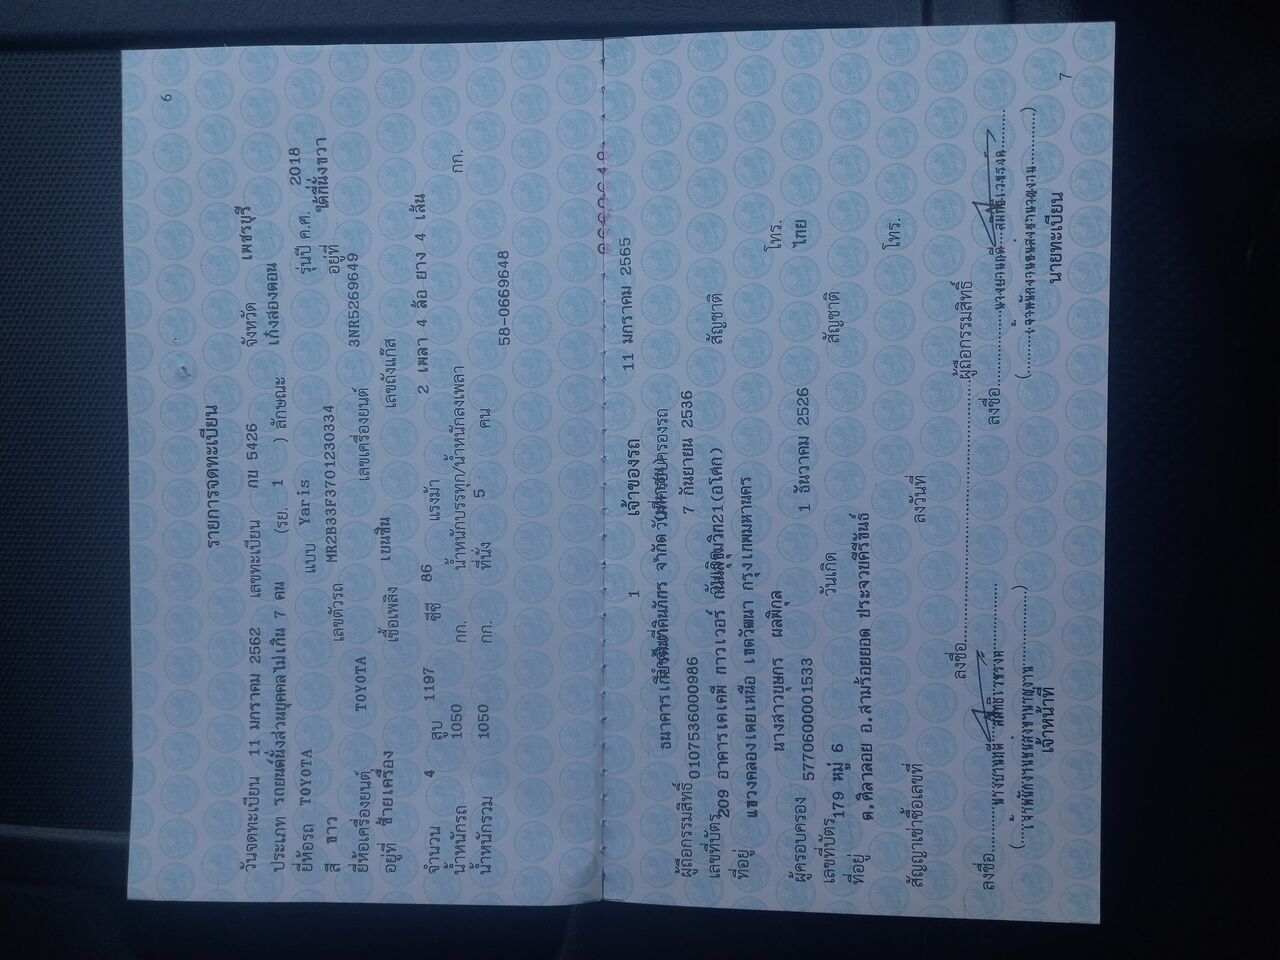 6
รายการจดทะเบียน
วันจดทะเบียน 11 มกราคม 2562 เลขทะเบียน กข 5426 จังหวัด เพชรบุรี
ประเภท รถยนต์นั่งส่วนบุคคลไม่เกิน 7 คน (รย. 1 ) ลักษณะ เก๋งสองตอน
ยี่ห้อรถ TOYOTA แบบ Yaris รุ่นปี ค.ศ. 2018
สี ขาว เลขตัวรถ MR2B33F3701230334 อยู่ที่ ใต้ที่นั่งขวา
ยี่ห้อเครื่องยนต์ TOYOTA เลขเครื่องยนต์ 3NR5269649
อยู่ที่ ซ้ายเครื่อง เชื้อเพลิง เบนซิน เลขถังแก๊ส
จำนวน 4 สูบ 1197 ซีซี 86 แรงม้า 2 เพลา 4 ล้อ ยาง 4 เส้น
น้ำหนักรถ 1050 กก. น้ำหนักบรรทุก/น้ำหนักลงเพลา กก.
น้ำหนักรวม 1050 กก. ที่นั่ง 5 คน
58-0669648
1 เจ้าของรถ 11 มกราคม 2565
ธนาคารเกียรตินาคินภัทร จำกัด
ผู้ถือกรรมสิทธิ์
เลขที่บัตร 0107536000986 วันเกิด 7 กันยายน 2536 สัญชาติ
ที่อยู่ 209 อาคารเคเคพี ทาวเวอร์ ถนนสุขุมวิท21(อโศก)
แขวงคลองเตยเหนือ เขตวัฒนา กรุงเทพมหานคร
โทร.
ผู้ครอบครอง นางสาวบุษกร ผลพิกุล
เลขที่บัตร 5770600001533 วันเกิด 1 ธันวาคม 2526 สัญชาติ ไทย
ที่อยู่ 179 หมู่ 6
ต.ศิลาลอย อ.สามร้อยยอด ประจวบคีรีขันธ์
โทร.
สัญญาเช่าซื้อเลขที่ ลงวันที่
ลงชื่อ ผู้ถือกรรมสิทธิ์
ลงชื่อ ลงชื่อ
เจ้าหน้าที่ นายทะเบียน
7